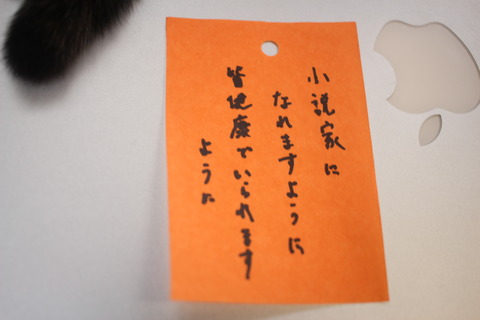 小説家に
なれますように
皆健康でいられます
ように